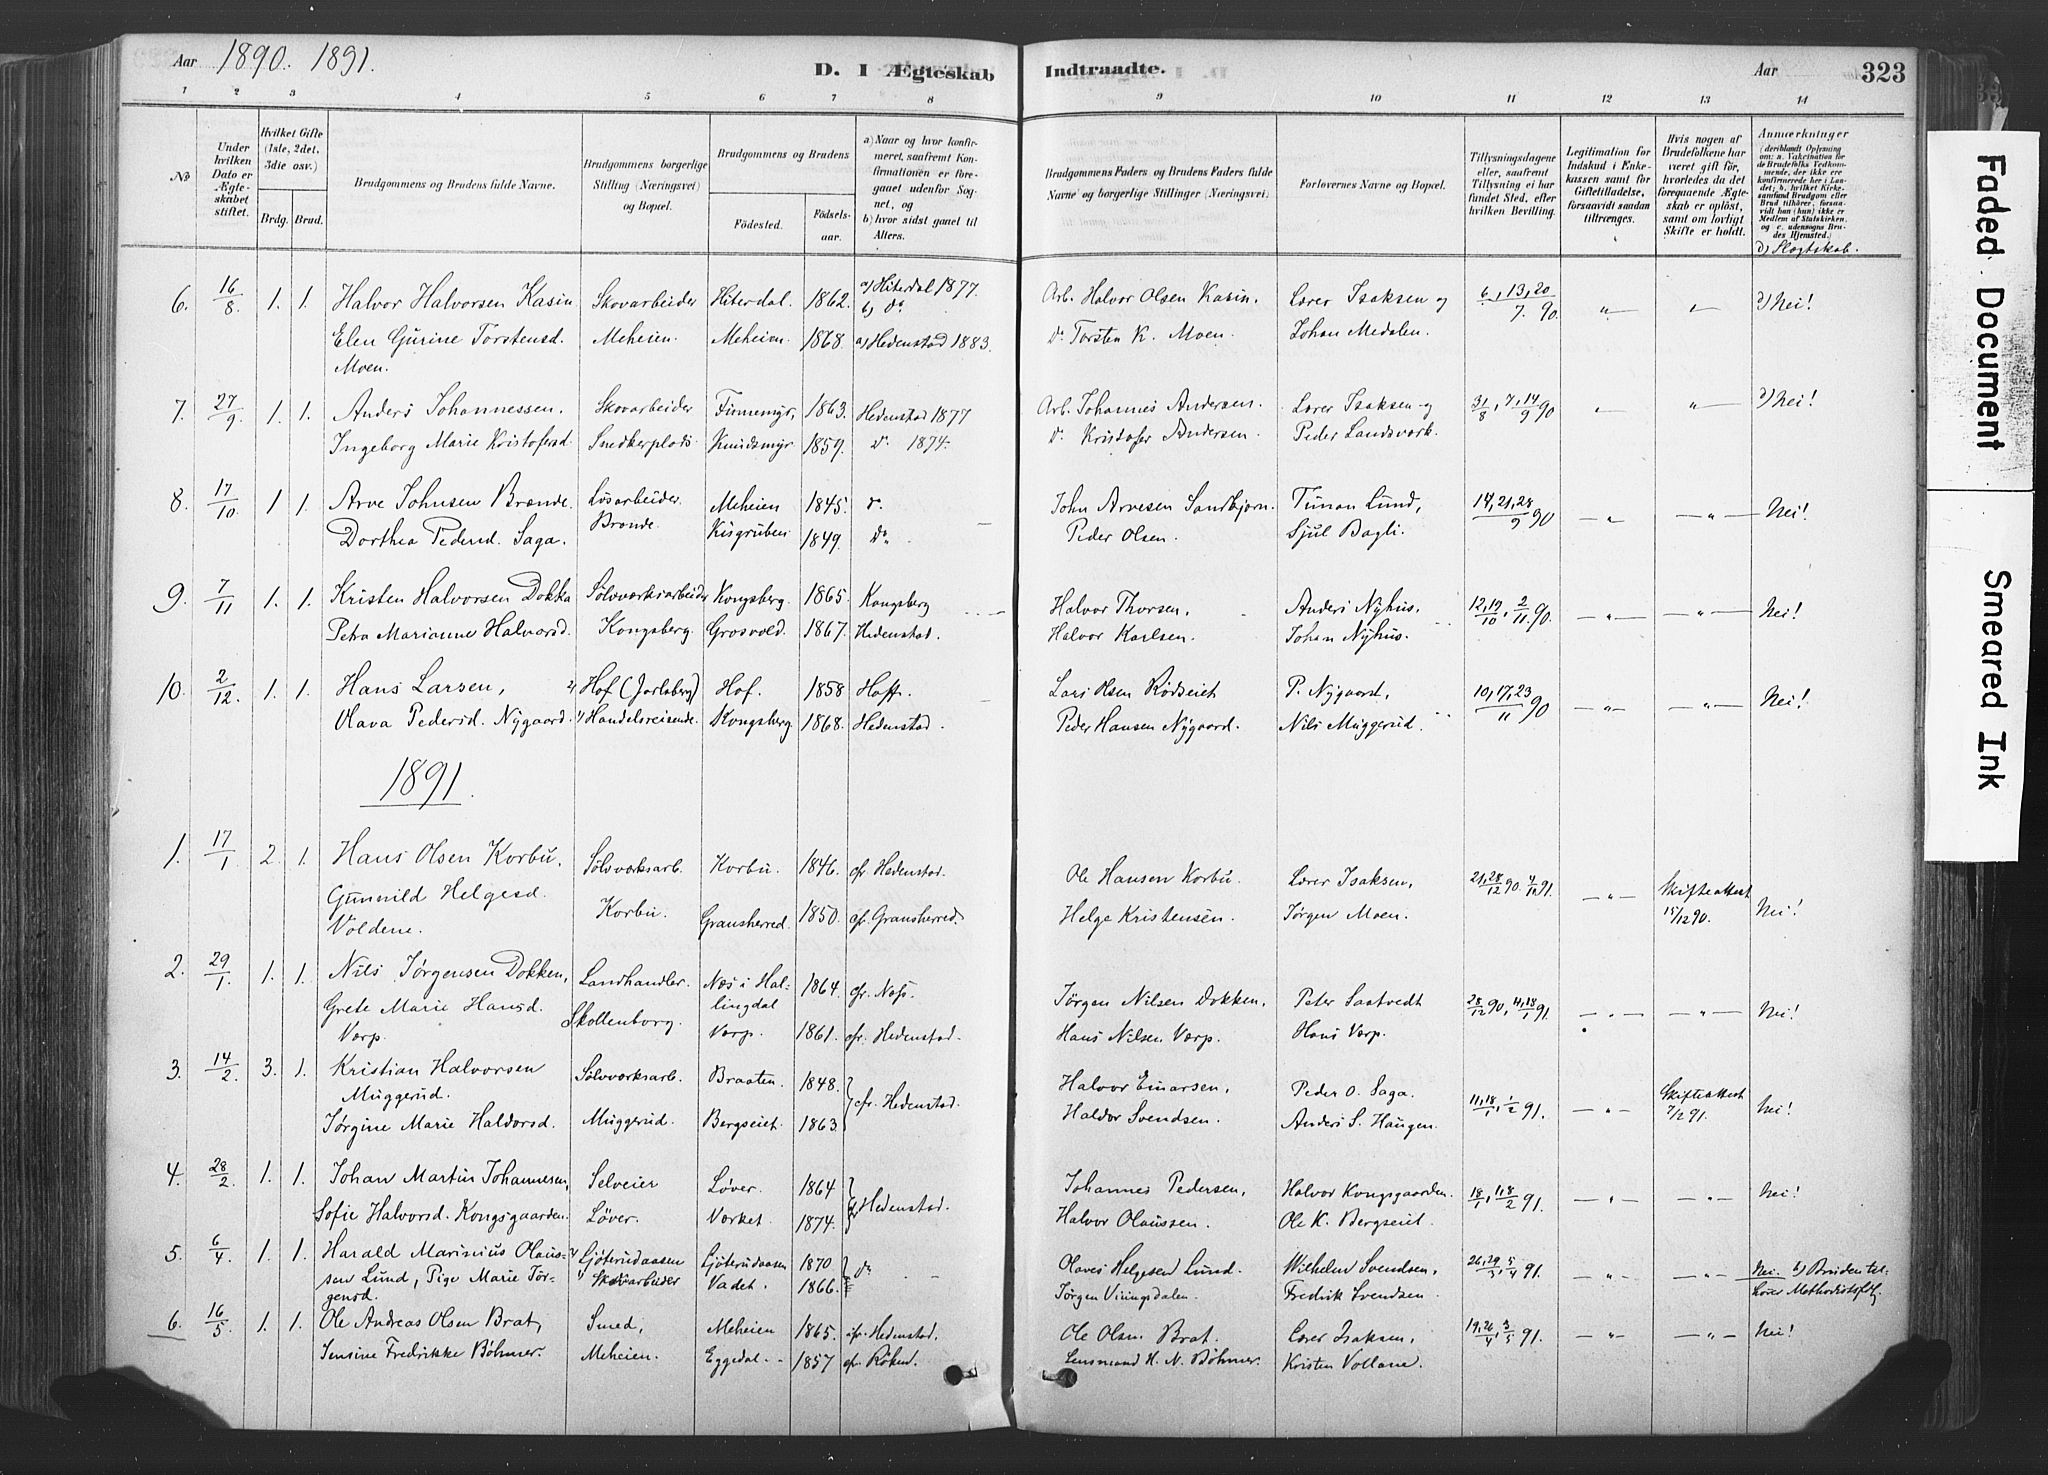 Aar 1890. 1891.
D. I Ægteskab Indtraadte.
Aar 323
1 2 3 4 5 6 7 8 9 10 11 12 13 14
No
Under hvilken Dato er Ægteskabet stiftet.
Hvilket Gifte (1ste, 2det, 3die osv.)
Brdg. Brud.
Brudgommens og Brudens fulde Navne.
Brudgommens borgerlige Stilling (Næringsvei) og Bopæl.
Brudgommens og Brudens
Födested. Födselsaar.
a) Naar og hvor konfirmeret, saafremt Konfirmationen er foregaaet udenfor Sognet, og
b) hvor sidst gaaet til Alters.
Brudgommens Faders og Brudens Faders fulde Navne og borgerlige Stillinger (Næringsvei).
Forlovernes Navne og Bopæl.
Tillysningsdagene eller, saafremt Tillysning ei har fundet Sted, efter hvilken Bevilling.
Legitimation for Indskud i Enkekassen samt for Giftetilladelse, forsaavidt saadan tiltrænges.
Hvis nogen af Brudefolkene har været gift før, hvorledes da det foregaaende Ægteskab er oplöst, samt om lovligt Skifte er holdt.
Anmærkninger (deriblandt Oplysning om: a. Vakcination for de Brudefolks Vedkommende, der ikke ere konfirmerede her i Landet; b. hvilket Kirkesamfund Brudgom eller Brud tilhörer, forsaavidt han (hun) ikke er Medlem af Statskirken, og c. udensogns Brudes Hjemsted.)
d) Slægtskab.
6. 16/8 1. 1. Halvor Halvorsen Kasin Skovarbeider Hiterdal. 1862. a) Hiterdal 1877. b) do Arb. Halvor Olsen Kasin. Lærer Isaksen og 6, 13, 20/7 90. " " d) Nei!
Elen Gurine Torstensd. Moen. Meheien. Meheien. 1868. a) Hedenstad 1883. Do Torsten K. Moen. Johan Medalen.
7. 27/9 1. 1. Anders Johannessen. Skovarbeider Finnemyr, 1863. Hedenstad 1877 Arb. Johannes Andersen. Lærer Isaksen og 31/8, 7, 14/9 90 " " d) Nei!
Ingeborg Marie Kristofersd. Snedkerplads Knudsmyr 1859. Do 1874. Do Kristofer Andersen. Peder Landsverk.
8. 17/10 1 1. Arve Johnsen Brænde. Løsarbeider. Meheien 1845. do John Arvesen Sandbjørn. Timan Lund, 14, 21, 28/9 90 — " — — " — Nei!
Dorthea Pedersd. Saga. Brænde. Kisgruben 1849. Do Peder Olsen. Sjul Bagli.
9. 7/11 1. 1. Kristen Halvorsen Dokka Sølvværksarbeider Kongsberg. 1865. Kongsberg Halvor Thorsen. Anders Nyhus. 12, 19/10, 2/11 90. — " — — " — Nei!
Petra Marianne Halvorsd. Kongsberg. Grosvold. 1867. Hedenstad. Halvor Karlsen. Johan Nyhus.
10. 2/12 1. 1. Hans Larsen, 2) Hof (Jarlsberg) Hof. 1858 Hoff. Lars Olsen Rødseiet P. Nygaard, 10, 17, 23/11 90 — " — — " — Nei!
Olava Pedersd. Nygaard. 1) Handelsreisende. Kongsberg 1868. Hedenstad. Peder Hansen Nygaard. Nils Muggerud.
1891.
1. 17/1 2. 1. Hans Olsen Korbu. Sølvværksarb. Korbu. 1846. cfr. Hedenstad. Ole Hansen Korbu. Lærer Isaksen, 21, 28/12 90. 4/1 91. — " — Skifteattest 15/12 90. Nei!
Gunnild Helgesd. Voldene. Korbu. Gransherred. 1850. cfr. Gransherred. Helge Kristensen. Jørgen Moen.
2. 29/1 1. 1. Nils Jørgensen Dokken, Landhandler. Næs i Hallingdal 1864. cfr. Næss. Jørgen Nilsen Dokken. Peter Saatvedt 28/12 90, 11, 18/1 91. — " — — " — Nei!
Grete Marie Hansd. Værp. Skollenborg. Værp. 1861. cfr. Hedenstad. Hans Nilsen Værp. Hans Værp.
3. 14/2 3. 1. Kristian Halvorsen Muggerud. Sølvværksarb. Braaten. 1848. cfr. Hedenstad. Halvor Einarsen, Peder O. Saga. 11, 18/1, 1/2 91. — " — Skifteattest 7/2 91. Nei!
Jørgine Marie Haldorsd. Muggerud. Bergseiet. 1863. Haldor Svendsen. Anders S. Haugen.
4. 28/2 1. 1. Johan Martin Johannesen, Selveier Løver. 1864 cfr Hedenstad. Johannes Pedersen, Halvor Kongsgaarden. 18/1, 1, 8/2 91. — " — — " — Nei!
Sofie Halvorsd. Kongsgaarden. Løver. Værket. 1874. Halvor Olaussen. Ole K. Bergseiet.
5. 6/4 1. 1. Harald Marinius Olaussen Lund, Pige Marie Jørgensd. 2) Ljøterudaasen 1) Skovarbeider Ljøterudaasen 1870 do Olaves Helgesen Lund. Wilhelm Svendsen, 26, 29/3, 5/4 91. — " — — " — Nei. b) Bruden tilhører Methodistsfk.
Vadet. 1866. Jørgen Viringsdalen. Fredrik Svendsen
6. 16/5 1. 1. Ole Andreas Olsen Bråt, Smed, Meheien 1865. cfr. Hedenstad. Ole Olsen Bråt. Lærer Isaksen, 19, 26/4, 3/5 91. — " — — " — Nei!
Jensine Fredrikke Bøhmer. Meheien. Eggedal. 1857 cfr. Røken. Lensmand H. N. Bøhmer. Kristen Vollane.
Faded Document
Smeared Ink